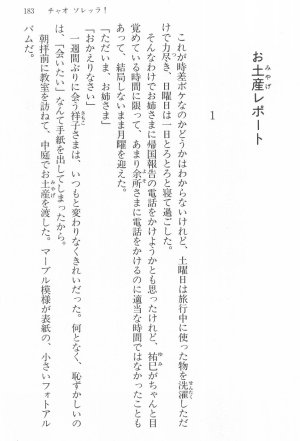 183　チャオ ソレッラ！
お土産レポート
みやげ
1
これが時差ボケなのかどうかはわからないけれど、土曜日は旅行中に使った物を洗濯しただ
せんたく
けで力尽き、日曜日は一日とろとろと寝て過ごした。
そんなわけでお姉さまに帰国報告の電話をかけようかとも思ったけれど、祐巳がちゃんと目
ゆみ
覚めている時間に限って、あまり余所さまに電話をかけるのに適当な時間ではなかったことも
よそ
あって、結局しないまま月曜を迎えた。
「ただいま、お姉さま」
「おかえりなさい」
一週間ぶりに会う祥子さまは、いつもと変わりなくきれいだった。何となく、恥ずかしいの
さちこ
は、「会いたい」なんて手紙を出してしまったから。
朝拝前に教室を訪ねて、中庭でお土産を渡した。マーブル模様が表紙の、小さいフォトアル
みやげ
バムだ。